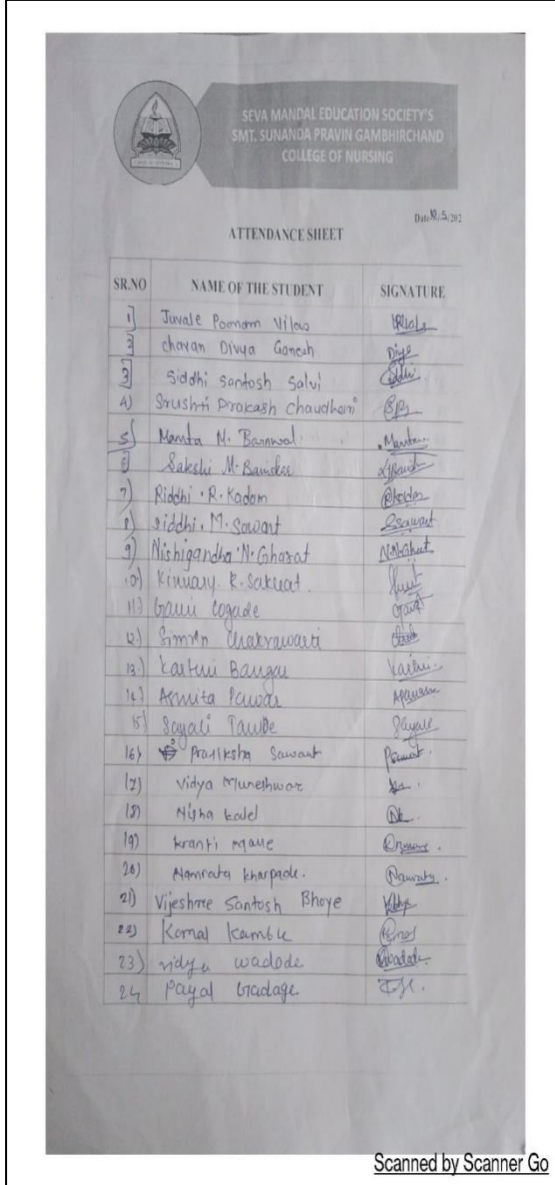 SEVA MANDAL EDUCATION SOCIETY'S
SMT. SUNANDA PRAVIN GAMBHIRCHAND
COLLEGE OF NURSING
Date 10/5/202
ATTENDANCE SHEET
SR.NO NAME OF THE STUDENT SIGNATURE
1) Juvale Poonam Vilas
2) chavan Divya Ganesh Divya
3) Siddhi Santosh Salvi Siddhi
4) Srushti Prakash Chaudhari
5) Mamta M. Barnwal Mamta
6) Sakshi M. Baviskar
7) Riddhi . R. Kadam RKadam
8) siddhi . M. Sawant SSawant
9) Nishigandha . N. Gharat N.N.Gharat
10) Kinnary R. Sakpat
11) Gauri Gogade Gauri
12) Simran Chakrawarti
13) Kartuii Bangar
14) Asmita Pawar APawar
15) Sayali Tawde Sayali
16) Pratiksha Sawant
17) Vidya Muneshwar
18) Nisha kalel NK
19) kranti mane
20) Namrata kharpade. Namrata
21) Vijeshree Santosh Bhoye
22) Komal Kamble
23) vidya wadode Wadode
24 Payal Gadage
Scanned by Scanner Go